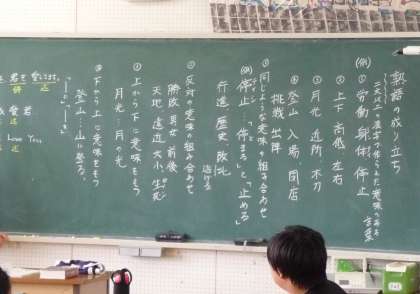 熟語の成り立ち
二字以上の漢字で作られた意味のある言葉
(例)① 労働 身体 停止
② 上下 高低 左右
③ 月光 近所 木刀
④ 登山 入場 閉店
挑戦 出陣
① 同じような意味の組み合わせ
(例) 停止→「停まる」と「止める」
行進 歴史 敗北
逃げる
② 反対の意味の組み合わせ
勝敗 男女 前後
天地 遠近 大小 生死
③ 上から下に意味をもつ
月光:月の光
④ 下から上に意味をもつ
登山:山に登る。
「に」「を」
君を愛してます。
Love You